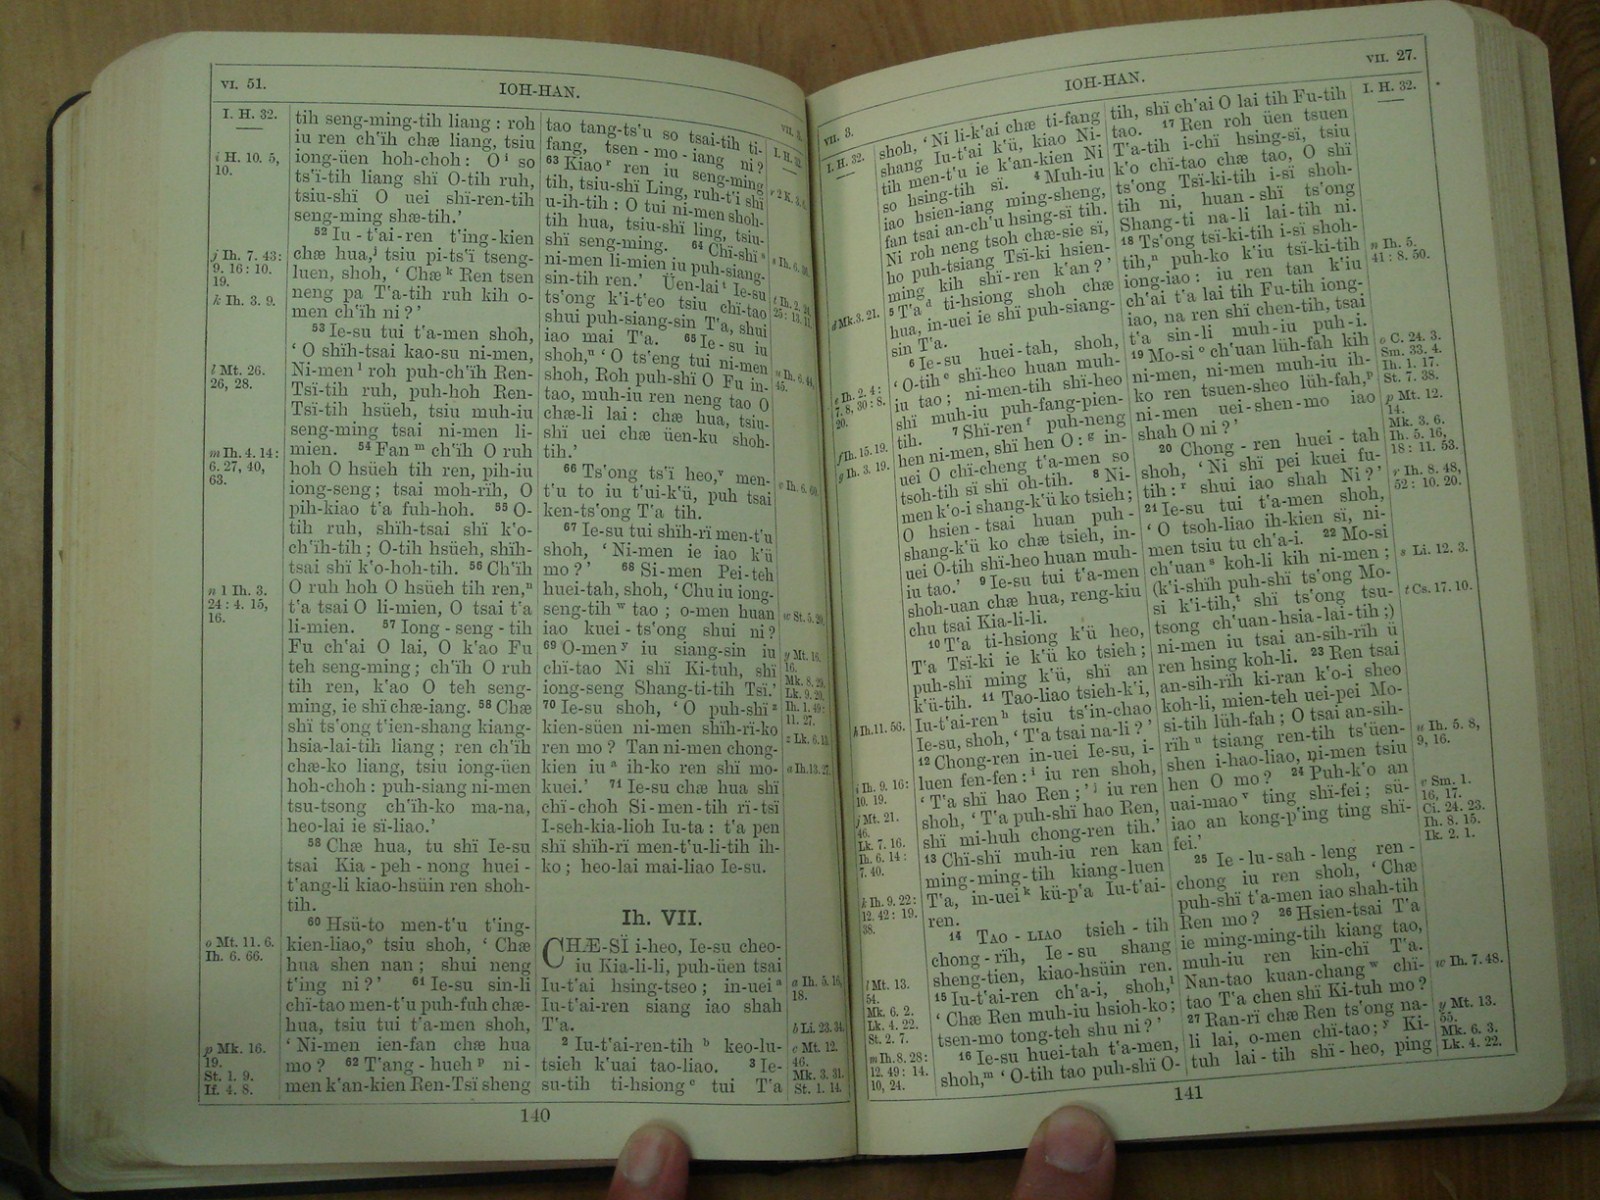 VI. 51.
IOH-HAN.
VII. 3.
I. H. 32.
i H. 10. 5,
10.
j Ih. 7. 43:
9. 16: 10.
19.
k Ih. 3. 9.
l Mt. 26.
26, 28.
m Ih. 4. 14:
6. 27, 40,
63.
n 1 Ih. 3.
24: 4. 15,
16.
o Mt. 11. 6.
Ih. 6. 66.
p Mk. 16.
19.
St. 1. 9.
If. 4. 8.
tih seng-ming-tih liang: roh
iu ren ch'ïh chæ liang, tsiu
iong-üen hoh-choh: O i so
ts'ï-tih liang shï O-tih ruh,
tsiu-shï O uei shï-ren-tih
seng-ming shæ-tih.'
52 Iu-t'ai-ren t'ing-kien
chæ hua,j tsiu pi-ts'ï tseng-
luen, shoh, ' Chæ k Ren tsen
neng pa T'a-tih ruh kih o-
men ch'ïh ni?'
53 Ie-su tui t'a-men shoh,
' O shïh-tsai kao-su ni-men,
Ni-men l roh puh-ch'ïh Ren-
Tsï-tih ruh, puh-hoh Ren-
Tsï-tih hsüeh, tsiu muh-iu
seng-ming tsai ni-men li-
mien. 54 Fan m ch'ïh O ruh
hoh O hsüeh tih ren, pih-iu
iong-seng; tsai moh-rïh, O
pih-kiao t'a fuh-hoh. 55 O-
tih ruh, shïh-tsai shï k'o-
ch'ïh-tih; O-tih hsüeh, shïh-
tsai shï k'o-hoh-tih. 56 Ch'ïh
O ruh hoh O hsüeh tih ren,n
t'a tsai O li-mien, O tsai t'a
li-mien. 57 Iong-seng-tih
Fu ch'ai O lai, O k'ao Fu
teh seng-ming; ch'ïh O ruh
tih ren, k'ao O teh seng-
ming, ie shï chæ-iang. 58 Chæ
shï ts'ong t'ien-shang kiang-
hsia-lai-tih liang; ren ch'ïh
chæ-ko liang, tsiu iong-üen
hoh-choh: puh-siang ni-men
tsu-tsong ch'ïh-ko ma-na,
heo-lai ie sï-liao.'
58 Chæ hua, tu shï Ie-su
tsai Kia-peh-nong huei-
t'ang-li kiao-hsüin ren shoh-
tih.
60 Hsü-to men-t'u t'ing-
kien-liao,o tsiu shoh, ' Chæ
hua shen nan; shui neng
t'ing ni?' 61 Ie-su sin-li
chï-tao men-t'u puh-fuh chæ-
hua, tsiu tui t'a-men shoh,
' Ni-men ien-fan chæ hua
mo? 62 T'ang-hueh p ni-
men k'an-kien Ren-Tsï sheng
tao tang-ts'u so tsai-tih ti-
fang, tsen-mo-iang ni?
63 Kiao r ren iu seng-ming
tih, tsiu-shï Ling, ruh-t'i shï
u-ih-tih: O tui ni-men shoh-
tih hua, tsiu-shï ling, tsiu-
shï seng-ming. 64 Chï-shï s
ni-men li-mien iu puh-siang-
sin-tih ren.' Üen-lai t Ie-su
ts'ong k'i-t'eo tsiu chï-tao
shui puh-siang-sin T'a, shui
iao mai T'a. 65 Ie-su iu
shoh,u ' O ts'eng tui ni-men
shoh, Roh puh-shï O Fu in-
tao, muh-iu ren neng tao O
chæ-li lai: chæ hua, tsiu-
shï uei chæ üen-ku shoh-
tih.'
66 Ts'ong ts'ï heo,v men-
t'u to iu t'ui-k'ü, puh tsai
ken-ts'ong T'a tih.
67 Ie-su tui shïh-rï men-t'u
shoh, ' Ni-men ie iao k'ü
mo?' 68 Si-men Pei-teh
huei-tah, shoh, ' Chu iu iong-
seng-tih w tao; o-men huan
iao kuei-ts'ong shui ni?
69 O-men y iu siang-sin iu
chï-tao Ni shï Ki-tuh, shï
iong-seng Shang-ti-tih Tsï.'
70 Ie-su shoh, ' O puh-shï z
kien-süen ni-men shïh-rï-ko
ren mo? Tan ni-men chong-
kien iu a ih-ko ren shï mo-
kuei.' 71 Ie-su chæ hua shï
chï-choh Si-men-tih rï-tsï
I-seh-kia-lioh Iu-ta: t'a pen
shï shïh-rï men-t'u-li-tih ih-
ko; heo-lai mai-liao Ie-su.
Ih. VII.
CHÆ-SÏ i-heo, Ie-su cheo-
iu Kia-li-li, puh-üen tsai
Iu-t'ai hsing-tseo; in-uei a
Iu-t'ai-ren siang iao shah
T'a.
2 Iu-t'ai-ren-tih b keo-lu-
tsieh k'uai tao-liao. 3 Ie-
su-tih ti-hsiong c tui T'a
I. H. 32.
r 2 K. 3. 6.
s Ih. 6. 36.
t Ih. 2. 24,
25: 13. 11.
u Ih. 6. 44,
45.
v Ih. 6. 60.
w St. 5. 20.
y Mt. 16.
16.
Mk. 8. 29.
Lk. 9. 20.
Ih. 1. 49:
11. 27.
z Lk. 6. 13.
a Ih. 13. 27.
a Ih. 5. 16,
18.
b Li. 23. 34.
c Mt. 12.
46.
Mk. 3. 31.
St. 1. 14.
140
VII. 3.
IOH-HAN.
VII. 27.
I. H. 32.
d Mk. 3. 21.
e Ih. 2. 4:
7. 8, 30: 8.
20.
f Ih. 15. 19.
g Ih. 3. 19.
h Ih. 11. 56.
i Ih. 9. 16:
10. 19.
j Mt. 21.
46.
Lk. 7. 16.
Ih. 6. 14:
7. 40.
k Ih. 9. 22:
12. 42: 19.
38.
l Mt. 13.
54.
Mk. 6. 2.
Lk. 4. 22.
St. 2. 7.
m Ih. 8. 28:
12. 49: 14.
10, 24.
shoh, ' Ni li-k'ai chæ ti-fang
shang Iu-t'ai k'ü, kiao Ni-
tih men-t'u ie k'an-kien Ni
so hsing-tih sï. 4 Muh-iu
iao hsien-iang ming-sheng,
fan tsai an-ch'u hsing-sï tih.
Ni roh neng tsoh chæ-sie sï,
ho puh-tsiang Tsï-ki hsien-
ming kih shï-ren k'an?'
5 T'a d ti-hsiong shoh chæ
hua, in-uei ie shï puh-siang-
sin T'a.
6 Ie-su huei-tah, shoh,
' O-tih e shï-heo huan muh-
iu tao; ni-men-tih shï-heo
shï muh-iu puh-fang-pien-
tih. 7 Shï-ren f puh-neng
hen ni-men, shï hen O: g in-
uei O chï-cheng t'a-men so
tsoh-tih sï shï oh-tih. 8 Ni-
men k'o-i shang-k'ü ko tsieh;
O hsien-tsai huan puh-
shang-k'ü ko chæ tsieh, in-
uei O-tih shï-heo huan muh-
iu tao.' 9 Ie-su tui t'a-men
shoh-uan chæ hua, reng-kiu
chu tsai Kia-li-li.
10 T'a ti-hsiong k'ü heo,
T'a Tsï-ki ie k'ü ko tsieh;
puh-shï ming k'ü, shï an
k'ü-tih. 11 Tao-liao tsieh-k'i,
Iu-t'ai-ren h tsiu ts'in-chao
Ie-su, shoh, ' T'a tsai na-li?'
12 Chong-ren in-uei Ie-su, i-
luen fen-fen: i iu ren shoh,
' T'a shï hao Ren;' j iu ren
shoh, ' T'a puh-shï hao Ren,
shï mi-huh chong-ren tih.'
13 Chï-shï muh-iu ren kan
ming-ming-tih kiang-luen
T'a, in-uei k kü-p'a Iu-t'ai-
ren.
14 TAO-LIAO tsieh-tih
chong-rïh, Ie-su shang
sheng-tien, kiao-hsüin ren.
15 Iu-t'ai-ren ch'a-i, shoh,l
' Chæ Ren muh-iu hsioh-ko;
tsen-mo tong-teh shu ni?'
16 Ie-su huei-tah t'a-men,
shoh,m ' O-tih tao puh-shï O-
tih, shï ch'ai O lai tih Fu-tih
tao. 17 Ren roh üen tsuen
T'a-tih i-chï hsing-sï, tsiu
k'o chï-tao chæ tao, O shï
ts'ong Tsï-ki-tih i-sï shoh-
tih ni, huan-shï ts'ong
Shang-ti na-li lai-tih ni.
18 Ts'ong tsï-ki-tih i-sï shoh-
tih,n puh-ko k'iu tsï-ki-tih
iong-iao: iu ren tan k'iu
ch'ai t'a lai tih Fu-tih iong-
iao, na ren shï chen-tih, tsai
t'a sin-li muh-iu puh-i.
19 Mo-si o ch'uan lüh-fah kih
ni-men, ni-men muh-iu ih-
ko ren tsuen-sheo lüh-fah,p
ni-men uei-shen-mo iao
shah O ni?'
20 Chong-ren huei-tah
shoh, ' Ni shï pei kuei fu-
tih: r shui iao shah Ni?'
21 Ie-su tui t'a-men shoh,
' O tsoh-liao ih-kien sï, ni-
men tsiu tu ch'a-i. 22 Mo-si
ch'uan s koh-li kih ni-men;
(k'i-shïh puh-shï ts'ong Mo-
si k'i-tih,t shï ts'ong tsu-
tsong ch'uan-hsia-lai-tih;)
ni-men iu tsai an-sih-rïh ü
ren hsing koh-li. 23 Ren tsai
an-sih-rïh ki-ran k'o-i sheo
koh-li, mien-teh uei-pei Mo-
si-tih lüh-fah; O tsai an-sih-
rïh u tsiang ren-tih ts'üen-
shen i-hao-liao, ni-men tsiu
hen O mo? 24 Puh-k'o an
uai-mao v ting shï-fei; sü-
iao an kong-p'ing ting shï-
fei.'
25 Ie-lu-sah-leng ren-
chong iu ren shoh, ' Chæ
puh-shï t'a-men iao shah-tih
Ren mo? 26 Hsien-tsai T'a
ie ming-ming-tih kiang tao,
muh-iu ren kin-chï T'a.
Nan-tao kuan-chang w chï-
tao T'a chen shï Ki-tuh mo?
27 Ran-rï chæ Ren ts'ong na-
li lai, o-men chï-tao; y Ki-
tuh lai-tih shï-heo, ping
I. H. 32.
n Ih. 5.
41: 8. 50.
o C. 24. 3.
Sm. 33. 4.
Ih. 1. 17.
St. 7. 38.
p Mt. 12.
14.
Mk. 3. 6.
Ih. 5. 16,
18: 11. 53.
r Ih. 8. 48,
52: 10. 20.
s Li. 12. 3.
t Cs. 17. 10.
u Ih. 5. 8,
9, 16.
v Sm. 1.
16, 17.
Ci. 24. 23.
Ih. 8. 15.
Ik. 2. 1.
w Ih. 7. 48.
y Mt. 13.
55.
Mk. 6. 3.
Lk. 4. 22.
141